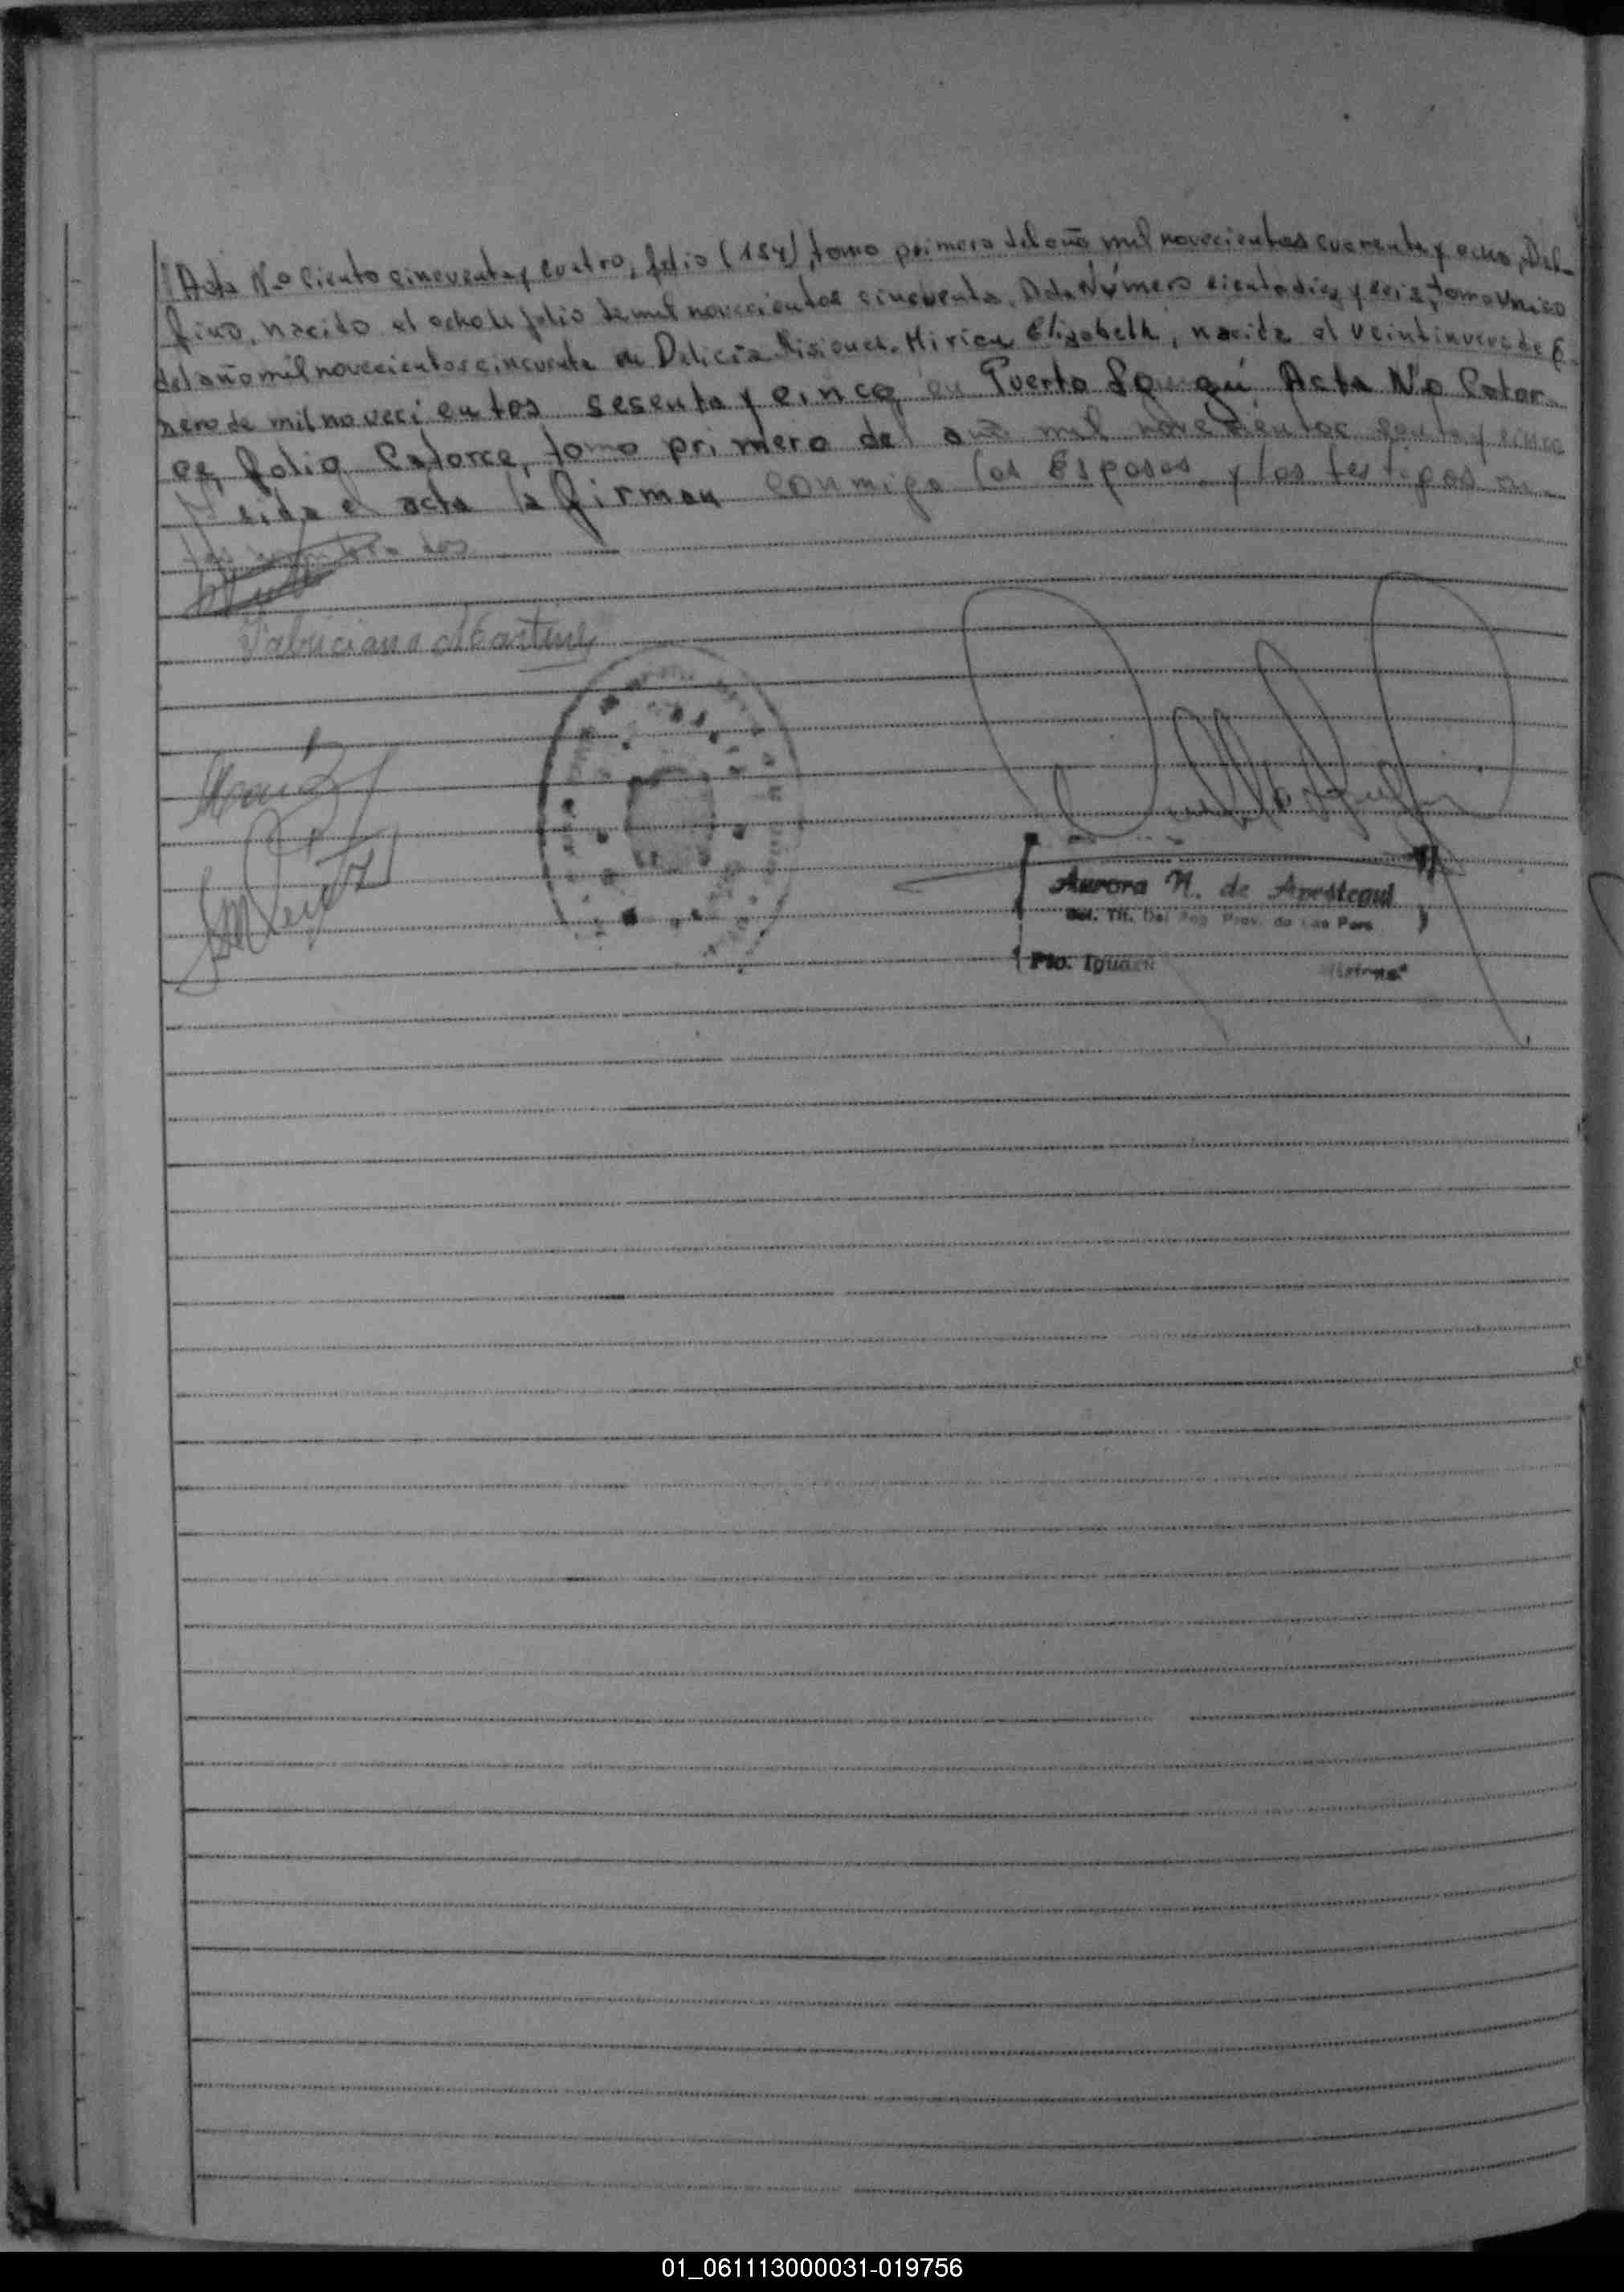 // Acta No Ciento cincuenta y cuatro, folio (154), tomo primero del año mil novecientos cuarenta y ocho, Del-
fino, nacido el ocho de julio de mil novecientos cincuenta, Acta Número ciento diez y seis, tomo Unico
del año mil novecientos cincuenta de Delicia Misiones. Miriam Elizabeth, nacida el veintinueve de E-
nero de mil novecientos sesenta y cinco, en Puerto Iguazú Acta No Cator-
ce, folio Catorce, tomo primero del año mil novecientos y cinco
Leida el acta la firman conmigo los Esposos y los testigos
Fabriciano Martinez
Aurora N. de Apestegui
Del. Tit. Del Reg. Prov. de las Pers.
Pto. Iguazú Misiones
01_061113000031-019756